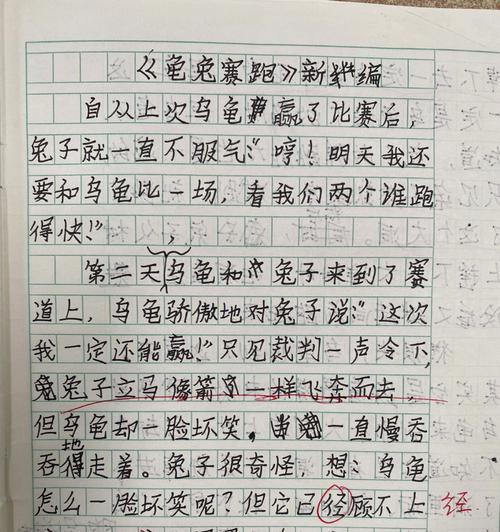 《龟兔赛跑》新编
自从上次乌龟赢了比赛后,
兔子就一直不服气:“哼!明天我还
要和乌龟比一场,看我们两个谁跑
得快!”
第二天,乌龟和兔子来到了赛
道上,乌龟骄傲地对兔子说:“这次
我一定还能赢!”只见裁判一声令下,
兔子立马像箭一样飞奔而去,
但乌龟却一脸坏笑,一直慢吞
吞地走着。兔子很奇怪,想:乌龟
怎么一脸坏笑呢?但它已经顾不上 经